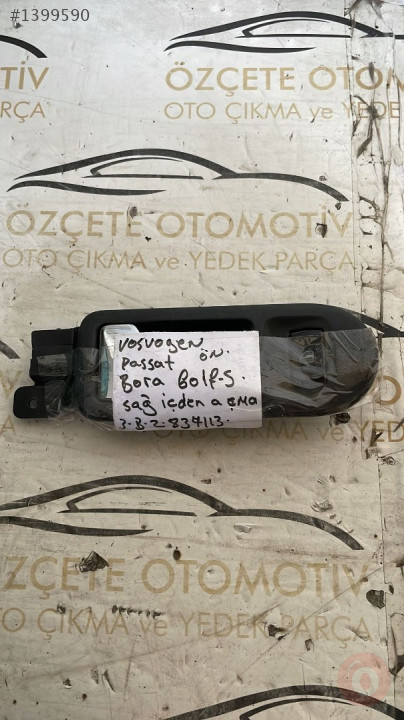 #1399590
OTİV
ARÇA
ÖZÇETE OTOMOTİV
OTO ÇIKMA ve YEDEK PARÇA
ÖZÇETE OTOMOTİV
OTO ÇIKMA ve YEDEK PARÇA
vosvogen
passat ön.
Bora Golf-5
sağ içden açma
3.B.2.837113.
ÖZÇETE OTOMOTİV
OTO ÇIKMA ve YEDEK PARÇA